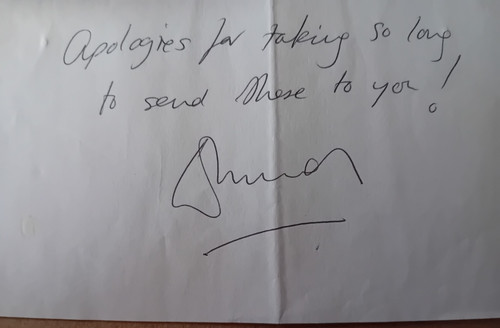 Apologies for taking so long
to send these to you!